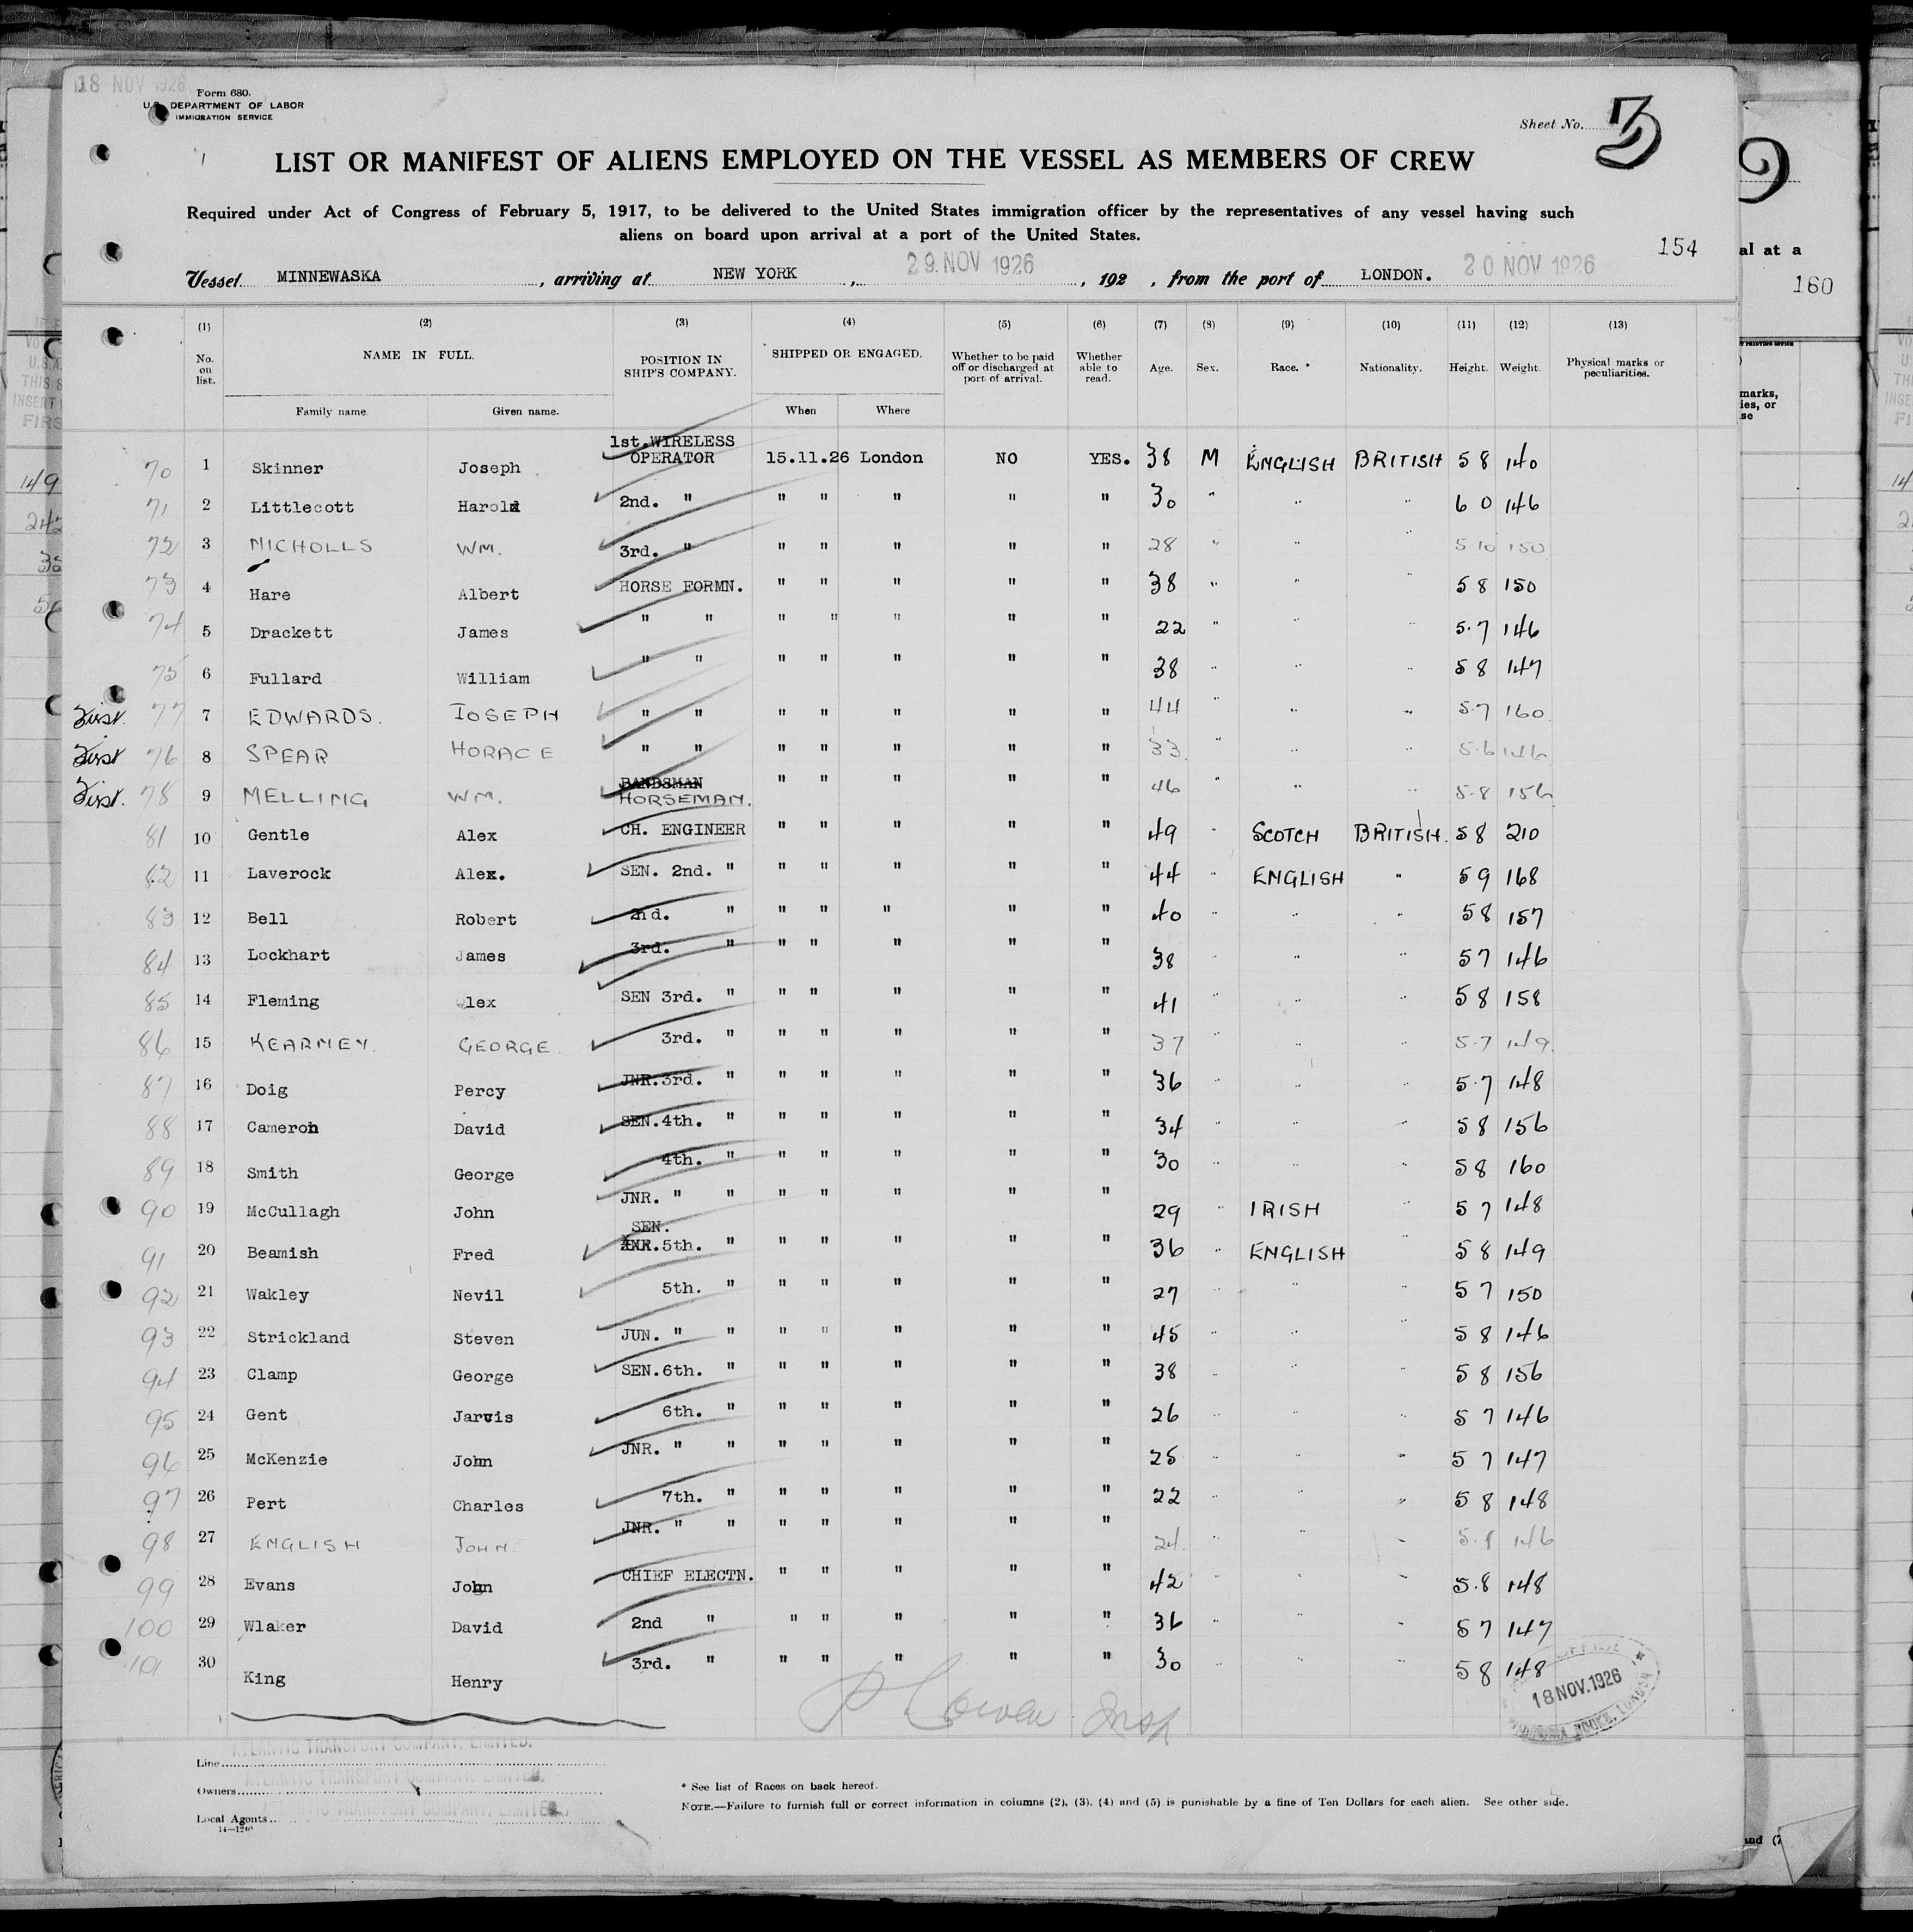 18 NOV 1926
Form 680.
U.S. DEPARTMENT OF LABOR
IMMIGRATION SERVICE
Sheet No. 3
LIST OR MANIFEST OF ALIENS EMPLOYED ON THE VESSEL AS MEMBERS OF CREW
Required under Act of Congress of February 5, 1917, to be delivered to the United States immigration officer by the representatives of any vessel having such
aliens on board upon arrival at a port of the United States.
154
Vessel MINNEWASKA, arriving at NEW YORK, 29 NOV 1926, 192 , from the port of LONDON. 20 NOV 1926
(1) (2) (3) (4) (5) (6) (7) (8) (9) (10) (11) (12) (13)
No. on list. NAME IN FULL. POSITION IN SHIP'S COMPANY. SHIPPED OR ENGAGED. Whether to be paid off or discharged at port of arrival. Whether able to read. Age. Sex. Race. * Nationality. Height. Weight. Physical marks or peculiarities.
Family name. Given name. When Where
70 1 Skinner Joseph 1st. WIRELESS OPERATOR 15.11.26 London NO YES. 38 M ENGLISH BRITISH 5 8 140
71 2 Littlecott Harold 2nd. " " " " " " 30 " " " 6 0 146
72 3 NICHOLLS WM. 3rd. " " " " " " 28 " " " 5 10 150
73 4 Hare Albert HORSE FORMN. " " " " " 38 " " " 5 8 150
74 5 Drackett James " " " " " " " 22 " " " 5.7 146
75 6 Fullard William " " " " " " " 38 " " " 5 8 147
First. 77 7 EDWARDS. JOSEPH " " " " " " " 44 " " " 5.7 160
First 76 8 SPEAR HORACE " " " " " " " 33 " 5.6 146
First. 78 9 MELLING WM. BANDSMAN HORSEMAN. " " " " " 46 " " 5.8 156
81 10 Gentle Alex CH. ENGINEER " " " " " 49 " SCOTCH BRITISH. 5 8 210
82 11 Laverock Alex. SEN. 2nd. " " " " " " 44 " ENGLISH " 5 9 168
83 12 Bell Robert 2nd. " " " " " " 40 " " " 5 8 157
84 13 Lockhart James 3rd. " " " " " " 38 " " " 5 7 146
85 14 Fleming Alex SEN 3rd. " " " " " " 41 " " " 5 8 158
86 15 KEARNEY. GEORGE. 3rd. " " " " " " 37 " " " 5.7 149.
87 16 Doig Percy JNR.3rd. " " " " " " 36 " " " 5.7 148
88 17 Cameron David SEN.4th. " " " " " " 34 " " " 5 8 156
89 18 Smith George 4th. " " " " " " 30 " " " 5 8 160
90 19 McCullagh John JNR. " " " " " " " 29 " IRISH " 5 7 148
91 20 Beamish Fred SEN. 5th. " " " " " " 36 " ENGLISH " 5 8 149
92 21 Wakley Nevil 5th. " " " " " " 27 " " " 5 7 150
93 22 Strickland Steven JUN. " " " " " " " 45 " " " 5 8 146
94 23 Clamp George SEN.6th. " " " " " " 38 " " " 5 8 156
95 24 Gent Jarvis 6th. " " " " " " 26 " " " 5 7 146
96 25 McKenzie John JNR. " " " " " " " 25 " " " 5 7 147
97 26 Pert Charles 7th. " " " " " " 22 " " " 5 8 148
98 27 ENGLISH JOHN. JNR. " " " " " " " 24. " " " 146
99 28 Evans John CHIEF ELECTN. " " " " " 42 " " " 5.8 148
100 29 Wlaker David 2nd " " " " " " 36 " " " 5 7 147
101 30 King Henry 3rd. " " " " " " 30 " " " 5 8 148
18 NOV. 1926
Insp
Line ATLANTIC TRANSPORT COMPANY, LIMITED.
Owners ATLANTIC TRANSPORT COMPANY, LIMITED.
Local Agents ATLANTIC TRANSPORT COMPANY, LIMITED.
* See list of Races on back hereof.
NOTE.—Failure to furnish full or correct information in columns (2), (3), (4) and (5) is punishable by a fine of Ten Dollars for each alien. See other side.
al at a
160
marks,
ies, or
se
149
242